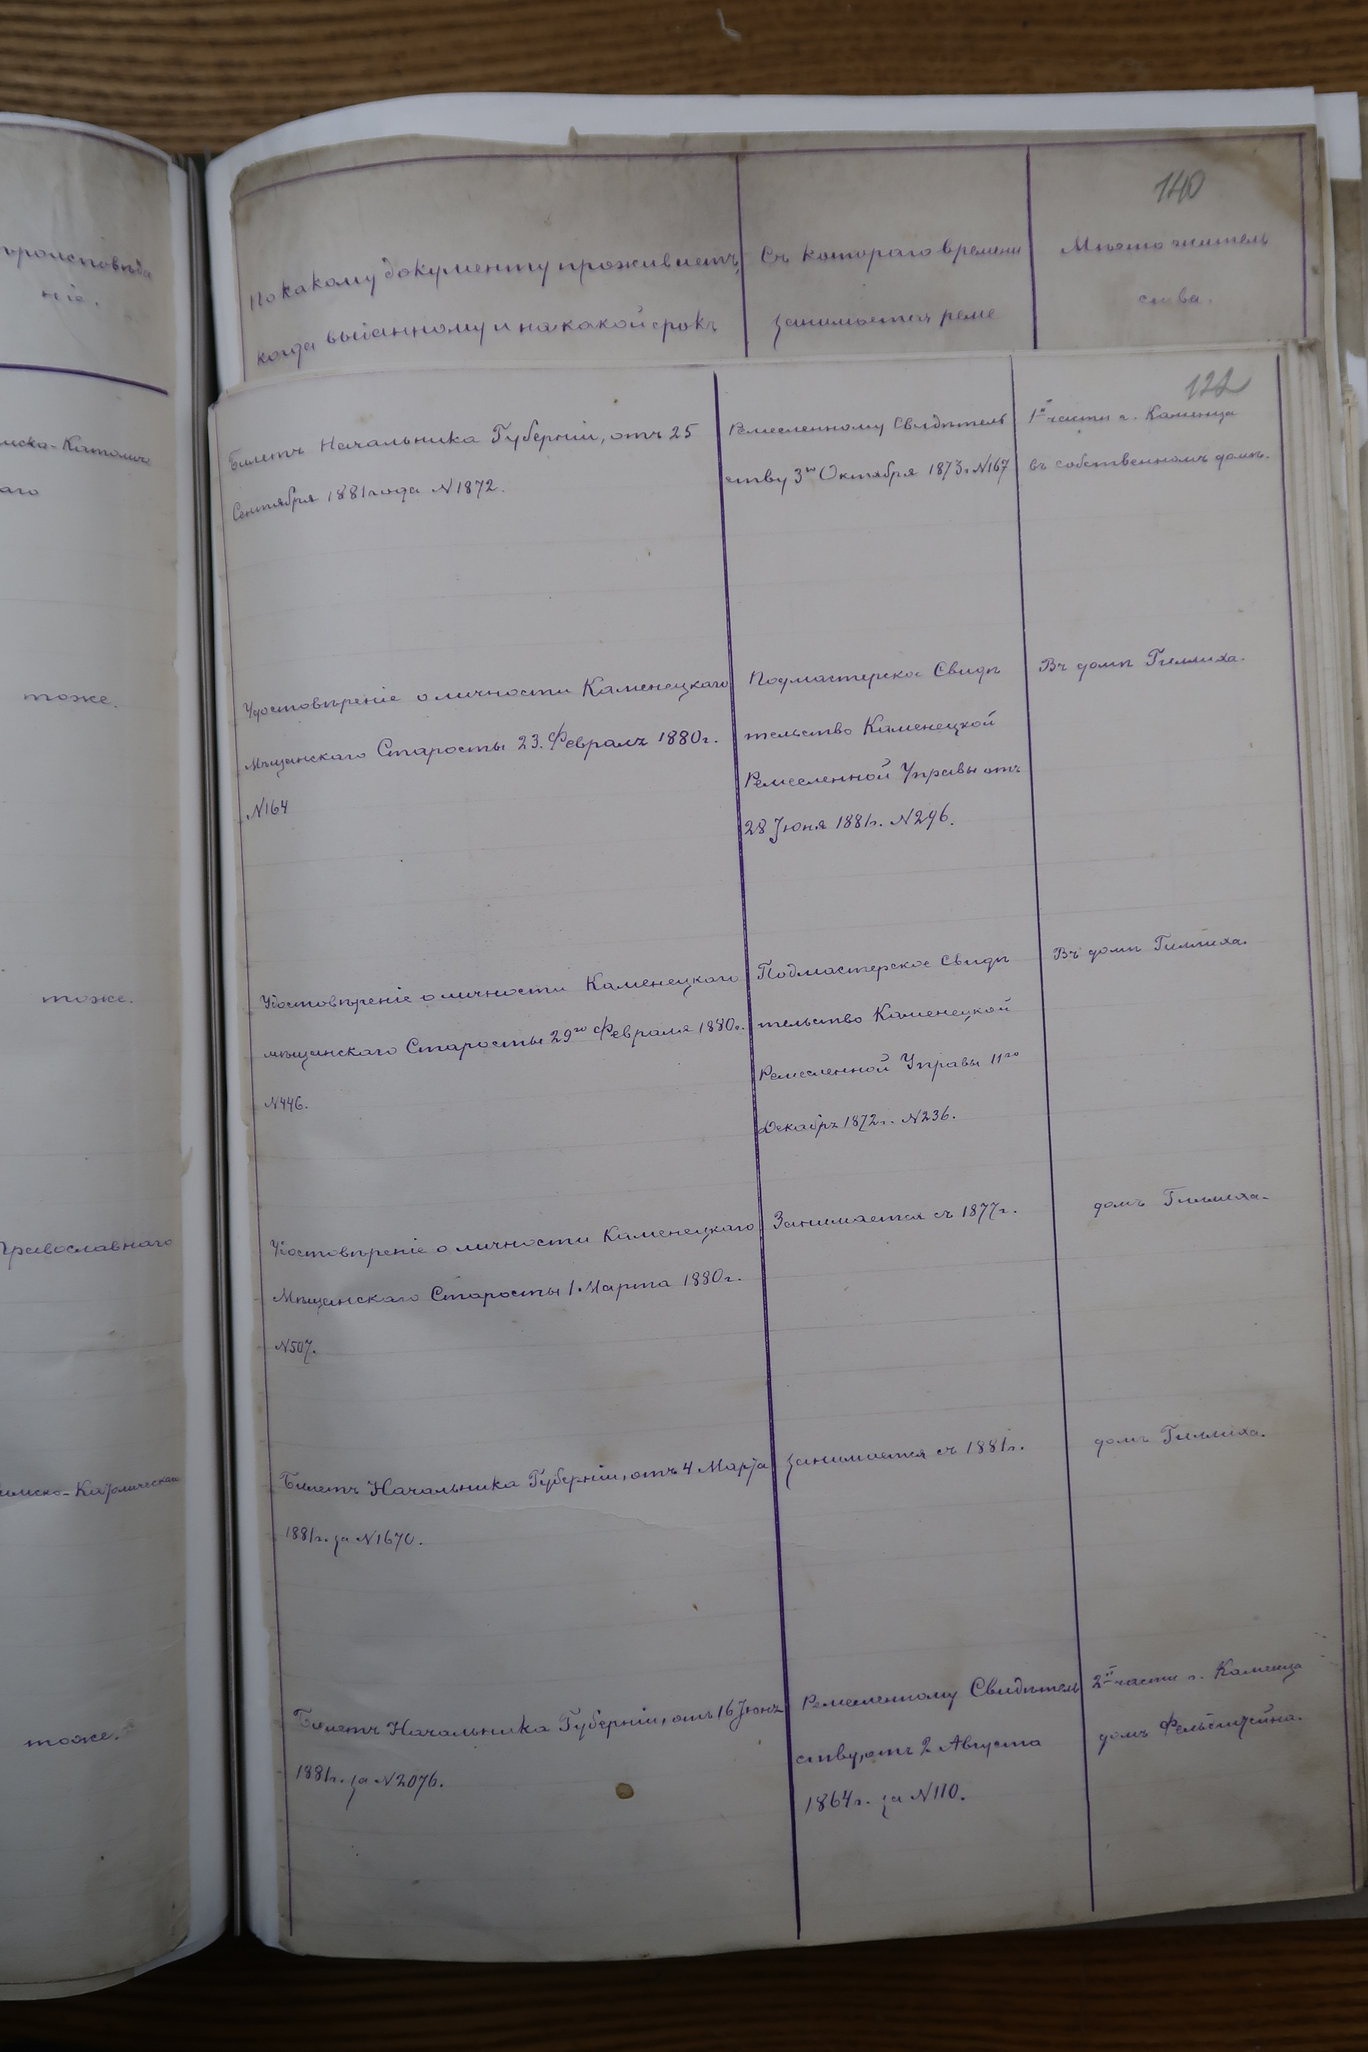 140
вроисповѣда
ніе.
По какому документу проживаетъ,
когда выданному и на какой срокъ
Съ котораго времени
занимается реме
Мѣсто житель
ства.
122
мско-Католиче
аго
Билетъ Начальника Губерніи, отъ 25
Сентября 1881 года №1872.
Ремесленному Свидѣтель
ству 3го Октября 1873г. №167
1й части г. Каменца
въ собственномъ домѣ.
тоже.
Удостовѣреніе о личности Каменецкаго
Мѣщанскаго Старосты 23. Февраля 1880г.
№164
Подмастерское Свидѣ
тельство Каменецкой
Ремесленной Управы отъ
28 Іюня 1881г. №296.
Въ домѣ Гиллиха.
тоже.
Удостовѣреніе о личности Каменецкаго
мѣщанскаго Старосты 29го Февраля 1880г.
№446.
Подмастерское Свидѣ
тельство Каменецкой
Ремесленной Управы 11го
Декабря 1872г. №236.
Въ домѣ Гиллиха.
Православнаго
Удостовѣреніе о личности Каменецкаго
Мѣщанскаго Старосты 1 Марта 1880г.
№507.
Занимается съ 1877г.
домъ Гиллиха.
имско-Католическаго
Билетъ Начальника Губерніи, отъ 4 Марта
1881г. за №1670.
занимается съ 1881г.
домъ Гиллиха.
тоже.
Билетъ Начальника Губерніи, отъ 16 Іюня
1881г. за №2076.
Ремесленному Свидѣтель
ству, отъ 2 Августа
1864г. за №110.
2й части г. Каменца
домъ Фельштейна.